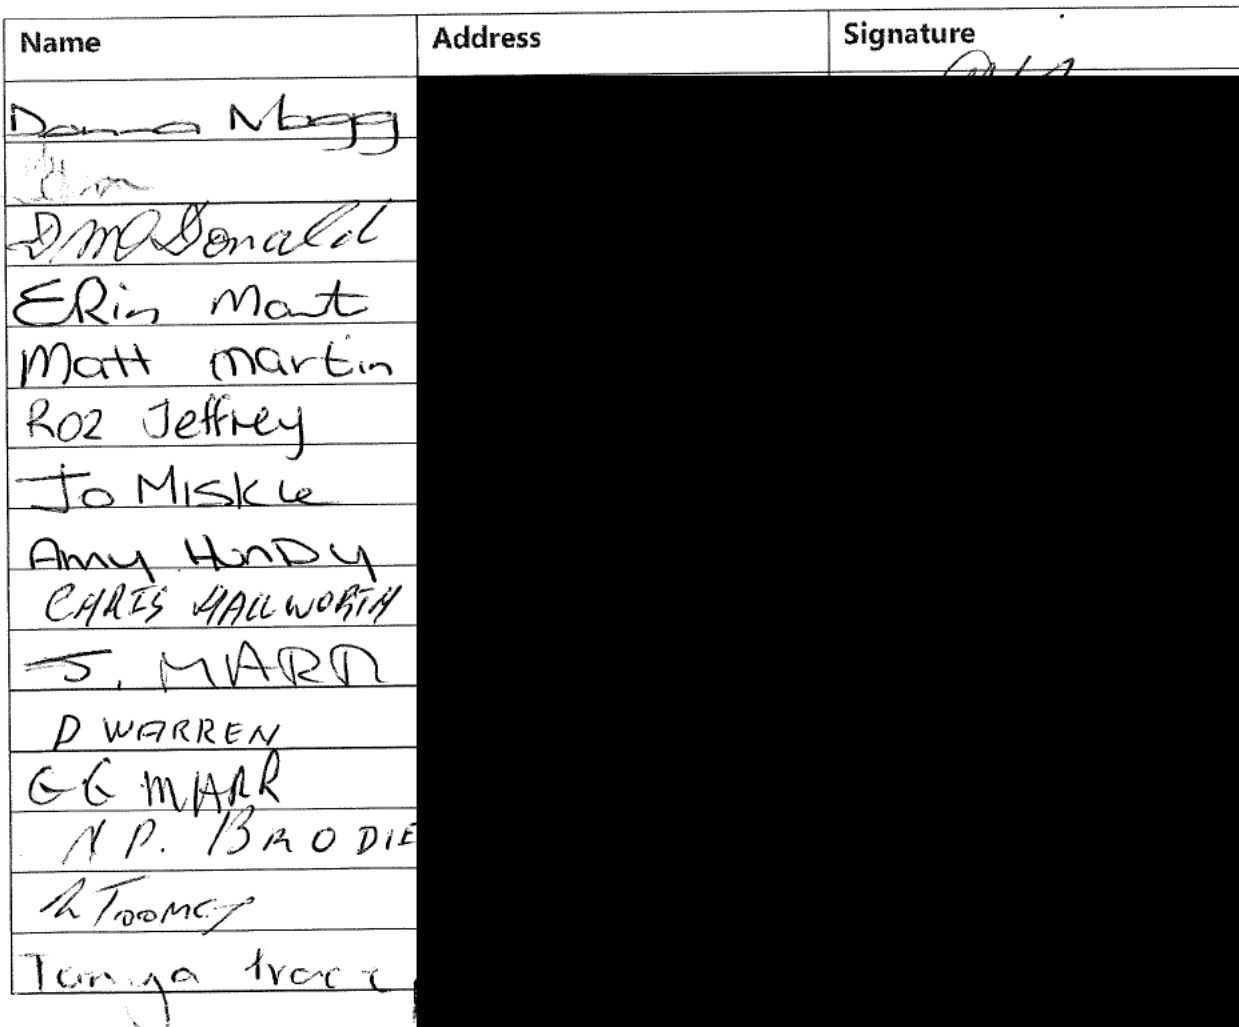 Name Address Signature
Donna Mogg
D McDonald
ERin
Matt martin
Roz Jeffrey
Jo MISKIe
Amy HunDy
CHRIS HALLWORTH
J. MARR
D WARREN
G G MARR
N P. BRODIE
Toomey
Tanya